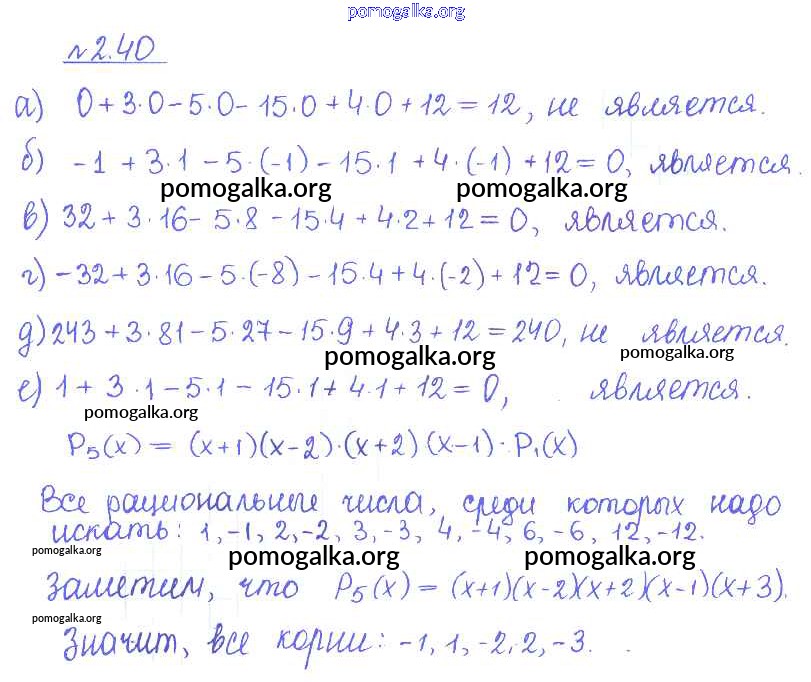 pomogalka.org
№2.40
а) 0+3·0-5·0-15·0+4·0+12=12, не является.
б) -1+3·1-5·(-1)-15·1+4·(-1)+12=0, является.
pomogalka.org pomogalka.org
в) 32+3·16-5·8-15·4+4·2+12=0, является.
г) -32+3·16-5·(-8)-15·4+4·(-2)+12=0, является.
д) 243+3·81-5·27-15·9+4·3+12=240, не является.
pomogalka.org pomogalka.org
е) 1+3·1-5·1-15·1+4·1+12=0, является.
pomogalka.org
P₅(x)=(x+1)(x-2)·(x+2)(x-1)·P₁(x)
Все рациональные числа, среди которых надо
искать: 1,-1,2,-2,3,-3,4,-4,6,-6,12,-12.
pomogalka.org pomogalka.org pomogalka.org
Заметим, что P₅(x)=(x+1)(x-2)(x+2)(x-1)(x+3).
pomogalka.org
Значит, все корни: -1,1,-2,2,-3.